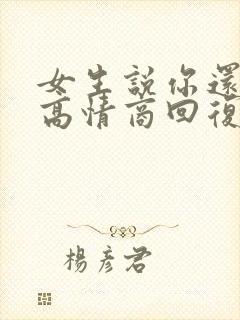 女生說你還
高情商回復
楊彥君